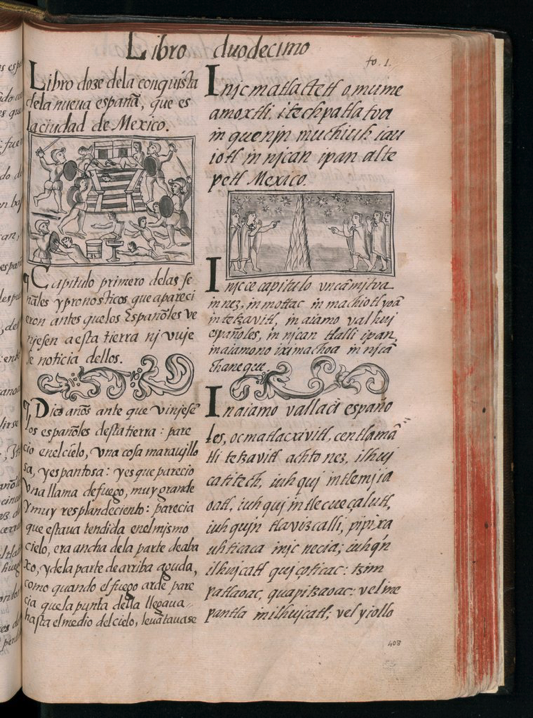 Libro duodecimo
fo. 1.
Libro doze dela conquista
dela nueua españa, que es
la ciudad de Mexico.
¶ Capitulo primero delas se
ñales y pronosticos, que apareci
eron antes quelos Españoles ve
njesen a esta tierra nj vuje
se noticia dellos.
¶ Diez años ante que vinjesē
los españoles desta tierra: pare
cio enel cielo, vna cosa marauillo
sa, y espantosa: y es que parecio
vna llama de fuego, muy grande
y muy resplandeciente: parecia
que estaua tendida enel mismo
cielo, era ancha dela parte de aba
xo, y dela parte de arriba aguda,
como quando el fuego arde pare
cia que la punta della llegaua
hasta el medio del cielo, leuātauase
Injc matlactetl omume
amoxtli, itechpatlatoa
in quenjn muchiuh iau
iotl in njcan ipan alte
petl Mexico.
Injc ce capitulo vncā mjtoa
in nez, in mottac in machiotl yoā
in tetzavitl, in aiamo valhuj
españoles, in njcan tlalli ipan
in aiamono iximachoa in njcā
chaneque.
In aiamo vallaci españo
les, oc matlacxivitl, centlamā
tli tetzavitl achto nez, ilhuj
catitech, iuhquj in tlemjia
oatl, iuhquj in tlecueçalutl,
iuhqujn tlavizcalli, pipixa
uhticaca injc necia, iuhqn
ilhujcatl qujçoticac: tzim
patlaoac, quapitzaoac: vel me
pantla in ilhujcatl, vel yiollo
408